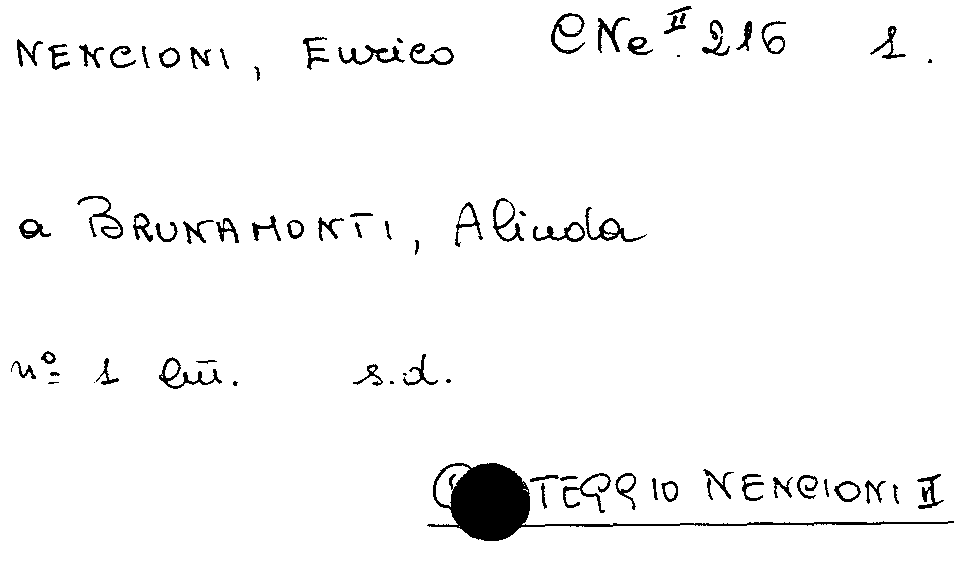 NENCIONI, Enrico CNe II. 216 1.
a BRUNAMONTI, Alinda
nº 1 lett. s.d.
TEGGIO NENCIONI II